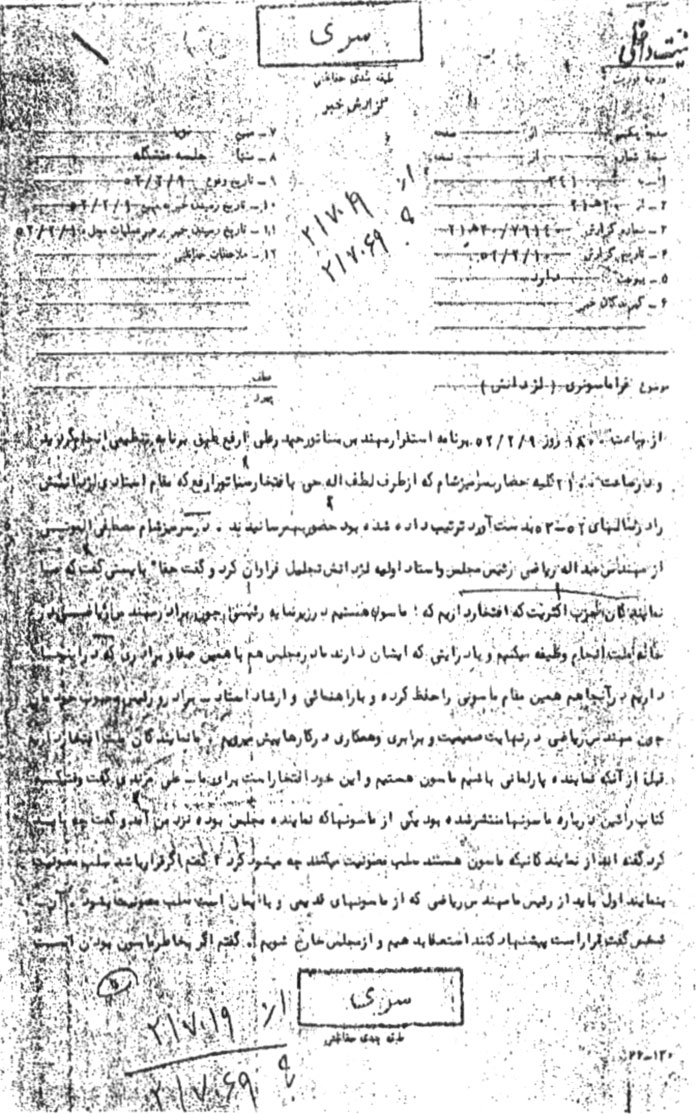 سری
طبقه بندی حفاظتی
گزارش خبر
درجه فوریت
۷ـ منبع
۸ـ منشأ جلسه متشکله
۹ـ تاریخ وقوع ۵۲/۲/۹
۱۰ـ تاریخ رسیدن خبر به منبع ۵۲/۲/۹
۱۱ـ تاریخ رسیدن خبر برهبر عملیات
۱۲ـ ملاحظات حفاظتی
از
۲۱۷۰۱۹
به
۲۱۷۰۶۹
صفحه
از
صفحه
از
۱ـ به ۳۲۱
۲ـ از ۲۰ ه ۲۱
۳ـ شماره گزارش
۴ـ تاریخ گزارش ۵۲/۲/۱۰
۵ـ پیوست ندارد
۶ـ گیرندگان خبر
موضوع فراماسونری (لژ دانش)
عطف
پیرو
از ساعت ۱۸۰۰ روز ۵۲/۲/۹ برنامه استقرار مهندس سناتور رفع طبق برنامه تنظیمی انجام گردید
و در ساعت ۲۱۰۰ کلیه حضار بسر میز شام که از طرف لطف اله حی بافتخار سناتور ارفع که مقام استادی لژ دانش
را در سالهای ۵۲ـ۵۳ بدست آورد ترتیب داده شده بود حضور بهم رسانیدند . در سر میز شام مصطفی
از مهندس عبداله ریاضی رئیس مجلس و استاد اولیه لژ دانش تجلیل فراوان کرد و گفت حقا" بایستی گفت که ما
نمایندگان حزب اکثریت که افتخار داریم که : ماسون هستیم در زیر نمایه رئیسی چون برادر مهندس ریاضی در
انجام وظیفه میکنیم و با درایتی که ایشان دارند ما در مجلس هم با همین صفا و برادری که در اینجا
داریم در آنجا هم همین مقام ماسونی را حفظ کرده و با راهنمائی و ارشاد استاد ـ برادر و رئیس محبوب خودمان
چون مهندس ریاضی در نهایت صمیمیت و برابری و همکاری در کارها پیش میرویم . ما نمایندگان ملت افتخار داریم
قبل از آنکه نماینده پارلمانی باشیم ماسون هستیم و این خود افتخار است برای ما ـ علی مرندی گفت وقتیکه
کتاب رائین درباره ماسونها منتشر شده بود یکی از ماسونها که نماینده مجلس بوده نزد من آمد و گفت چه باید
کرد گفته اند از نمایندگانیکه ماسون هستند سلب مصونیت میکنند چه میشود کرد ؟ گفتم اگر قرار باشد سلب مصونیت
بنمایند اول باید از رئیس ما مهندس ریاضی که از ماسونهای قدیمی و با ایمان است سلب مصونیت بشود . آن
شخص گفت قرار است پیشنهاد کنند استعفا بدهیم و از مجلس خارج شویم . گفتم اگر بخاطر ماسون بودن است
سری
طبقه بندی حفاظتی
از
۲۱۷۰۱۹
به
۲۱۷۰۶۹